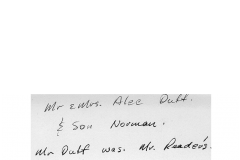 Mr & Mrs. Alec Duff.
& Son Norman.
Mr Duff was. Mr. Reader's.